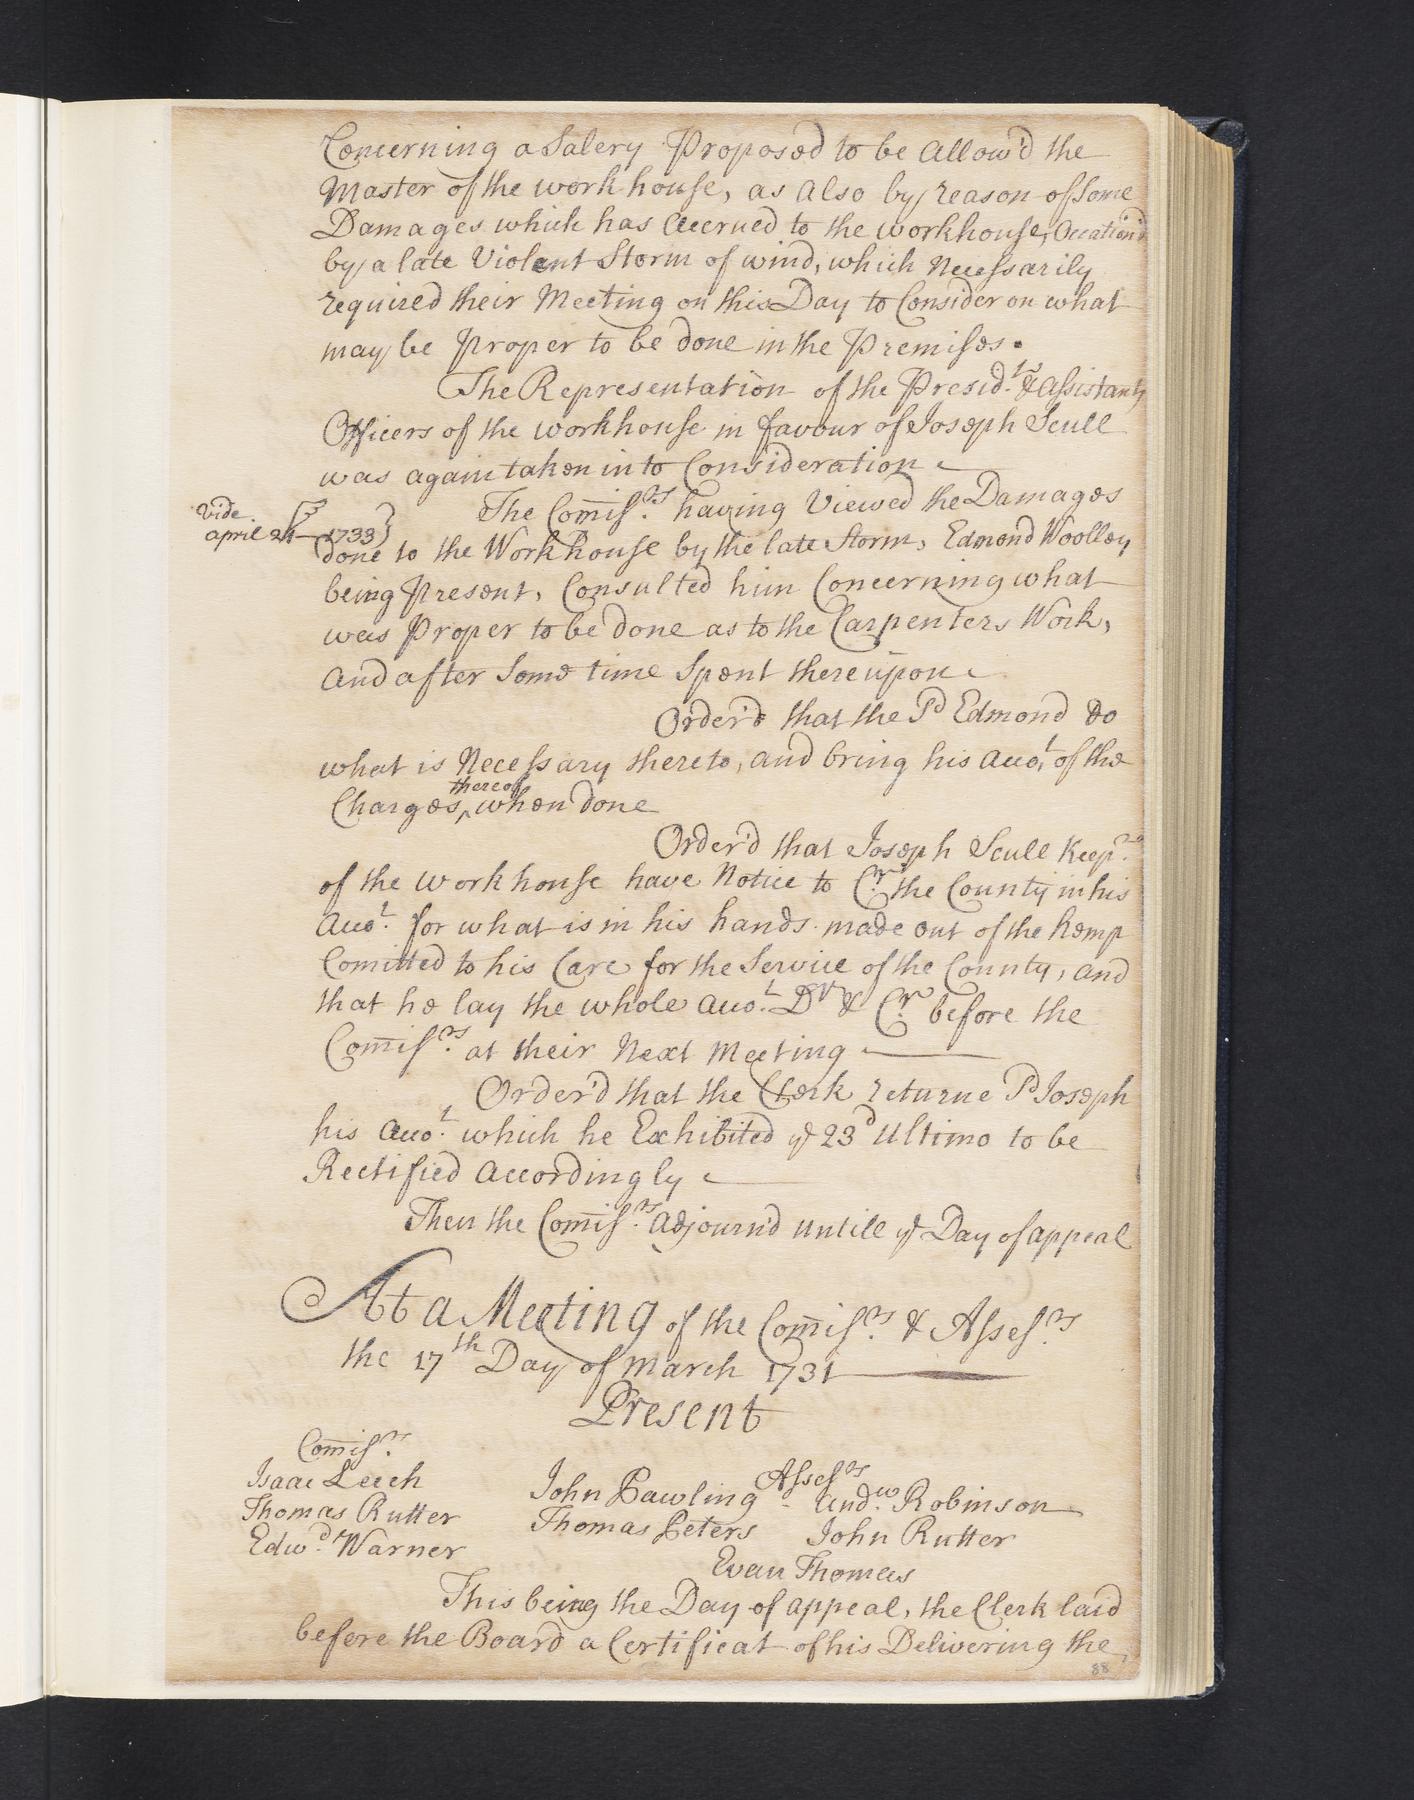 Concerning a Salery Proposed to be Allow'd the
Master of the workhouse, as also by reason of Some
Damages which has Accrued to the workhouse, Occation'd
by a late Violent Storm of wind, which Necessarily
required their Meeting on this Day to Consider on what
may be Proper to be done in the Premises.
The Representation of the Presid.ts & Assistants
Officers of the workhouse in favour of Joseph Scull
was again taken into Consideration
The Comiss.rs having Viewed the Damages
Vide
April 24 1733}
done to the Workhouse by the late Storm, Edmond Woolley
being Present, Consulted him Concerning what
was Proper to be done as to the Carpenters Work,
And after Some time Spent thereupon
Order'd that the Sd Edmond do
what is Necessary thereto, and bring his Acco.t of the
Charges ^thereof when done
Order'd that Joseph Scull Keep.r
of the workhouse have Notice to C.r the County in his
Acco.t for what is in his hands made out of the hemp
Comitted to his Care for the Service of the County, and
that he lay the whole Acco.t Dr & C.r before the
Comiss.rs at their Next Meeting
Order'd that the Clerk returne Sd Joseph
his Acco.t which he Exhibited ye 23d Ultimo to be
Rectified Accordingly
Then the Comiss.rs Adjourn'd untill ye Day of Appeal
At a Meeting of the Comiss.rs & Assess.rs
the 17th Day of March 1731
Present
Comiss.rs
Isaac Leech
Thomas Rutter
Edw.d Warner
Assess.rs
John Pawling And.w Robinson
Thomas Peters John Rutter
Evan Thomas
This being the Day of Appeal, the Clerk laid
before the Board a Certificat of his Delivering the
88